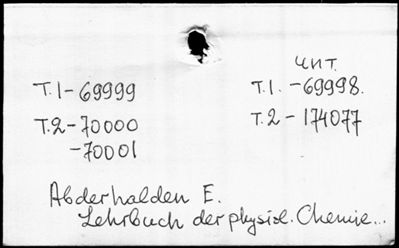 чит.
Т.1-69999 Т.1.-69998.
Т.2-70000 Т.2-174077
-70001
Abderhalden E.
Lehrbuch der physiol. Chemie...